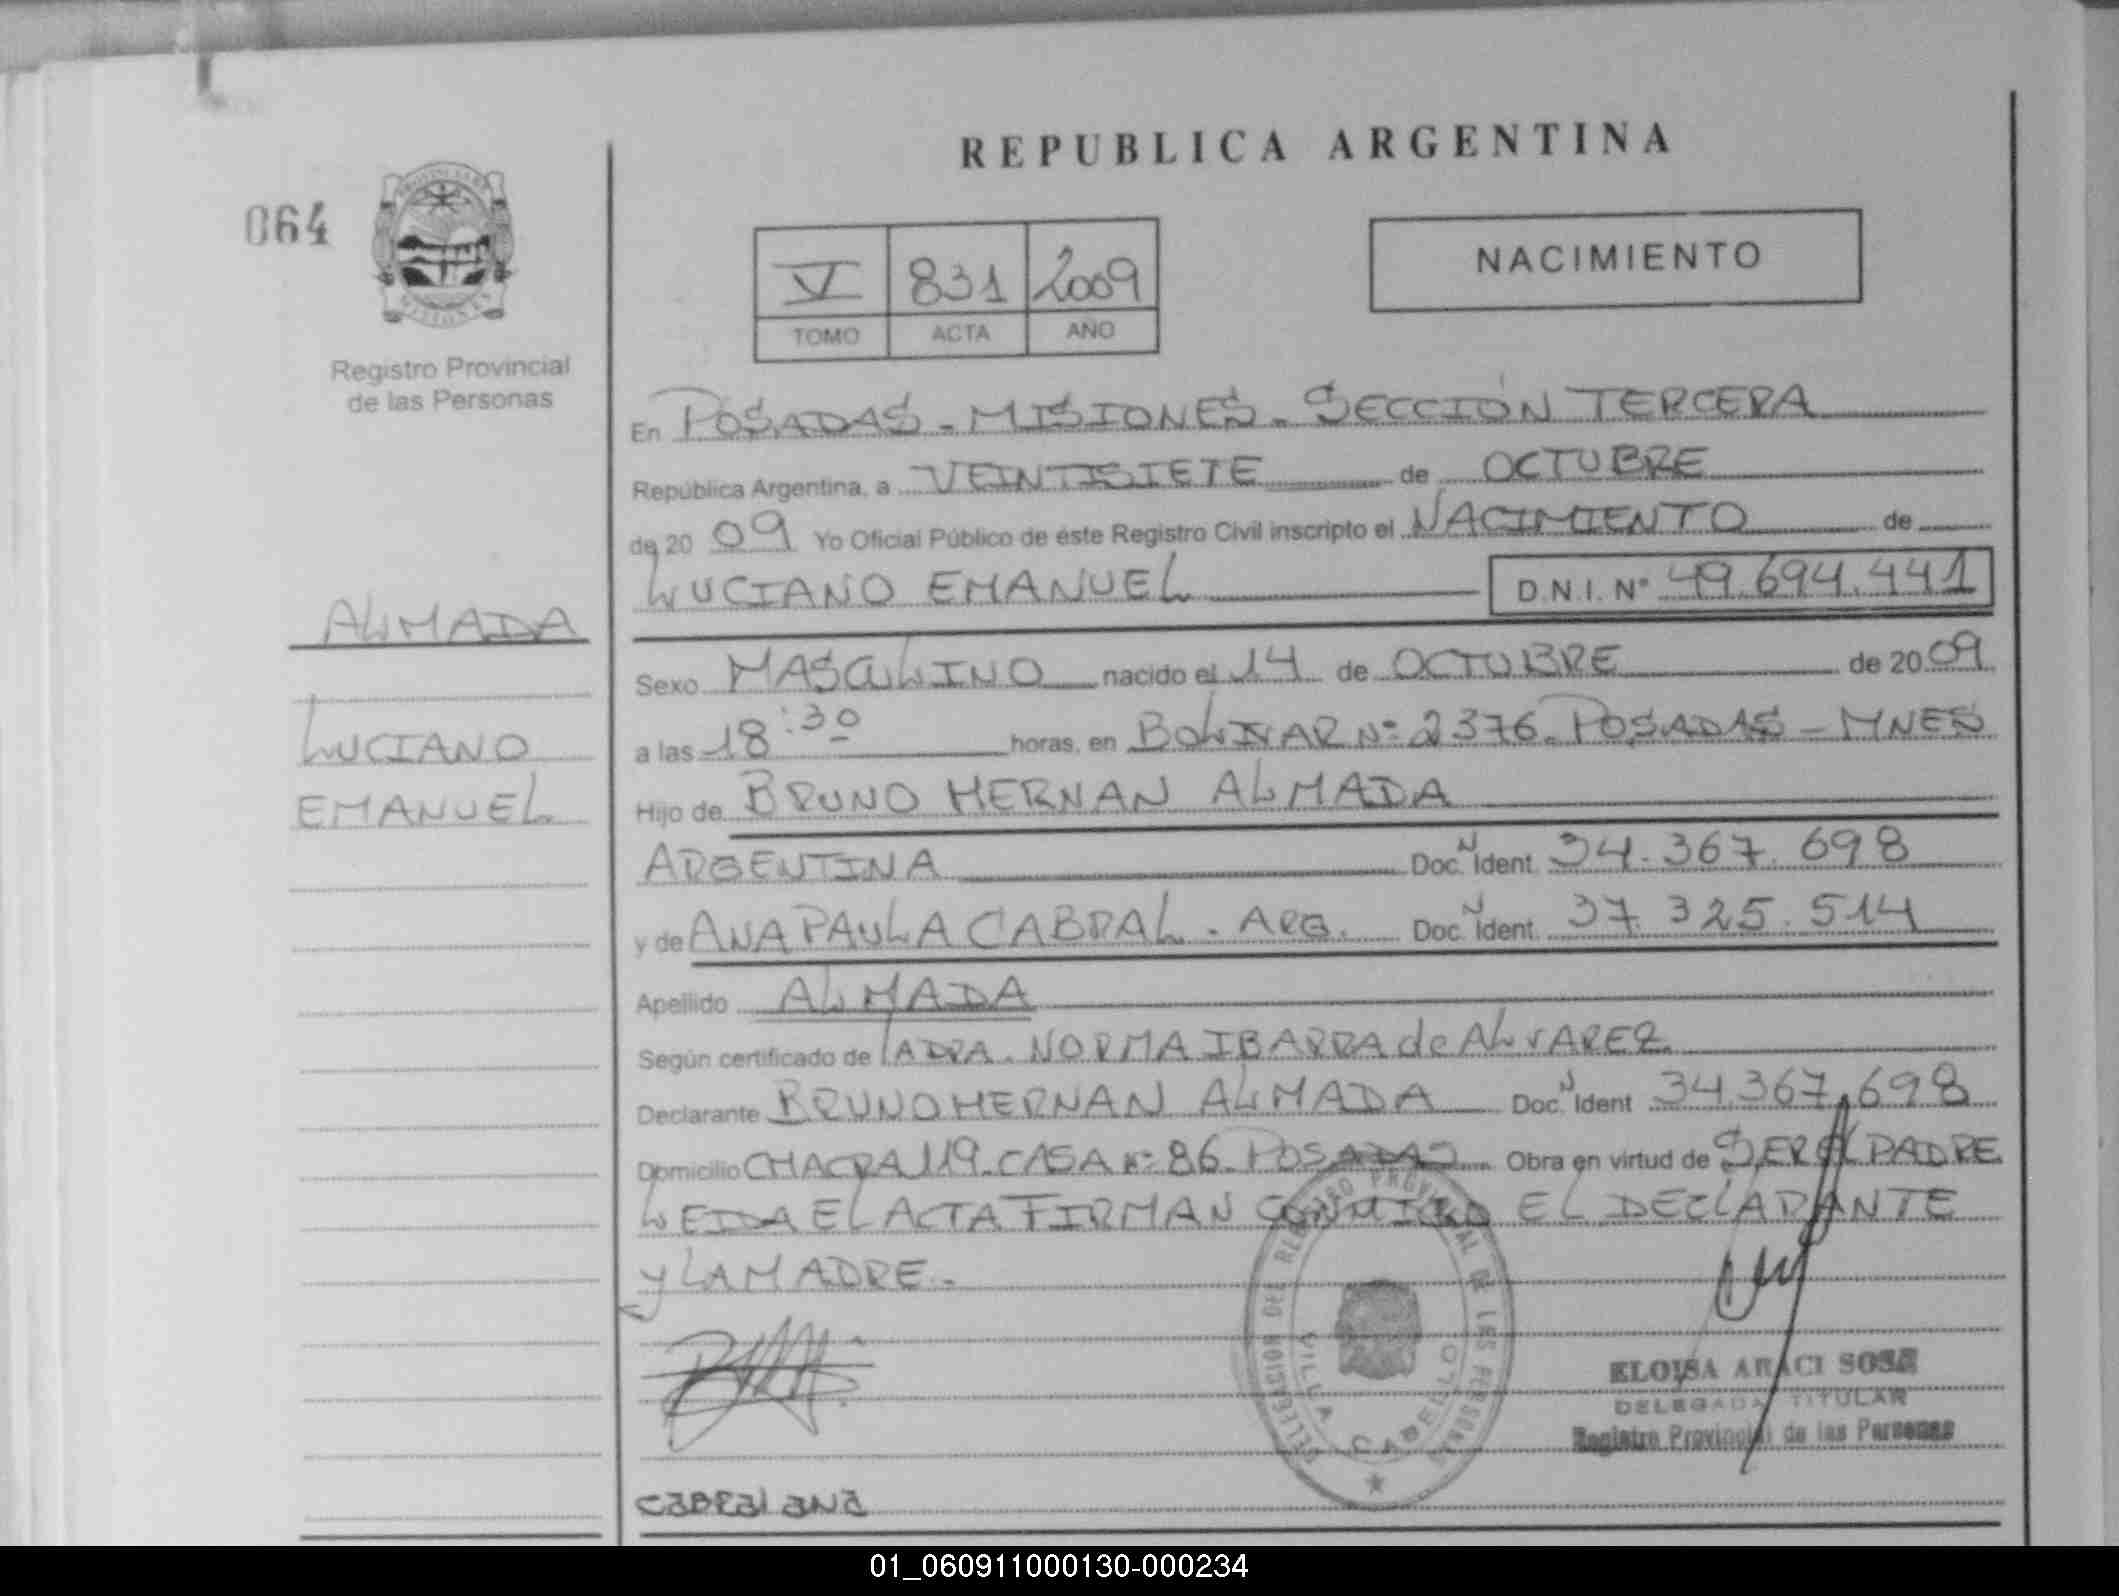 REPUBLICA ARGENTINA
064
NACIMIENTO
V 831 2009
TOMO ACTA AÑO
Registro Provincial
de las Personas
En POSADAS - MISIONES - SECCIÓN TERCERA
República Argentina, a VEINTISIETE de OCTUBRE
de 20 09 Yo Oficial Público de éste Registro Civil inscripto el NACIMIENTO de
LUCIANO EMANUEL D.N.I. Nº 49.694.441
ALMADA
LUCIANO
EMANUEL
Sexo MASCULINO nacido el 14 de OCTUBRE de 2009
a las 18:30 horas, en BOLIVAR Nº 2376 - POSADAS - MNES
Hijo de BRUNO HERNAN ALMADA
ARGENTINA Doc. N Ident. 34.367.698
y de ANA PAULA CABRAL - ARG. Doc. N Ident. 37.325.514
Apellido ALMADA
Según certificado de LA DRA. NORMA IBARRA de ALVAREZ
Declarante BRUNO HERNAN ALMADA Doc. N Ident 34.367.698
Domicilio CHACRA 119 - CASA Nº 86 - POSADAS Obra en virtud de SER EL PADRE
LEIDA EL ACTA FIRMAN CONMIGO EL DECLARANTE
y LA MADRE.-
DELEGACION DEL REGISTRO PROVINCIAL DE LAS PERSONAS
VILLA CABELLO
ELOISA ARACI SOSA
DELEGADA TITULAR
Registro Provincial de las Personas
CABRAL ANA
01_060911000130-000234